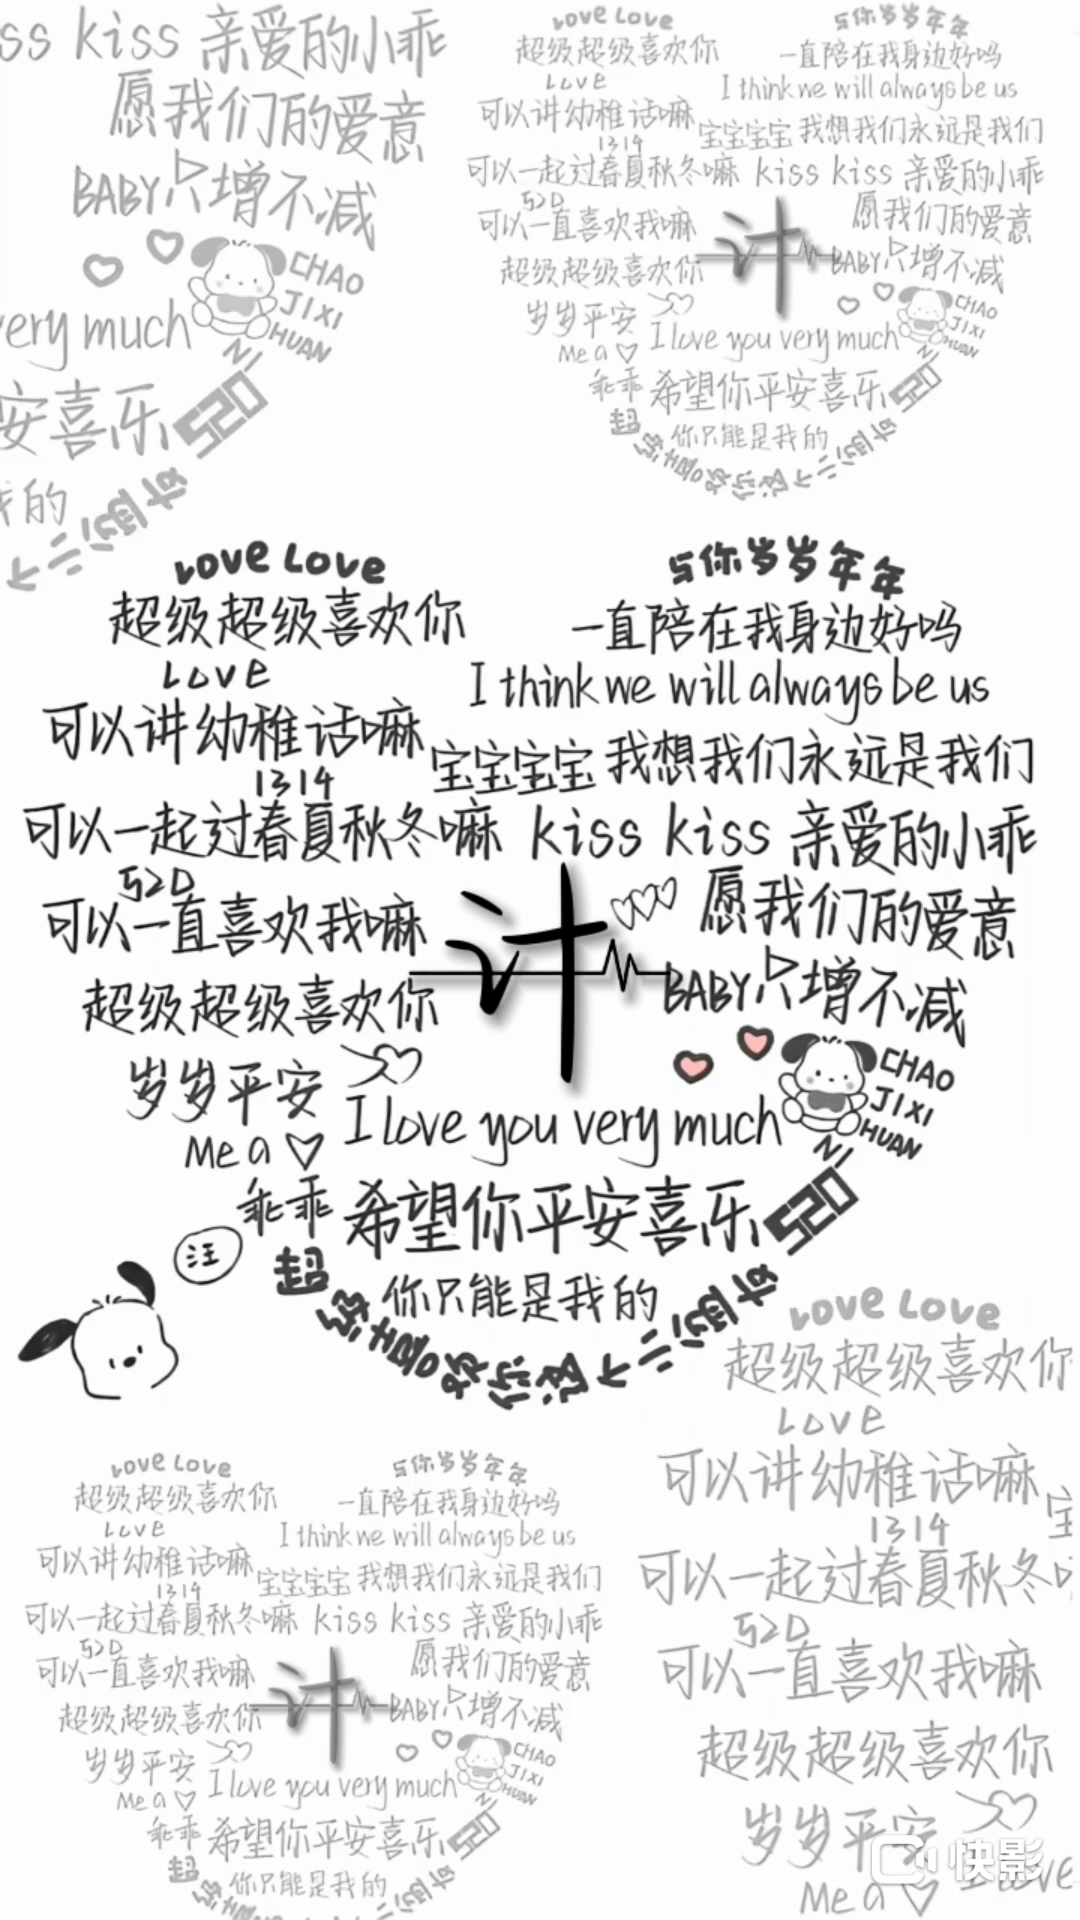 ss kiss 亲爱的小乖
愿我们的爱意
BABY只增不减
CHAO
JIXI
HUAN
NI
very much
安喜乐 520
我的
个二迴啦
Love Love
与你岁岁年年
超级超级喜欢你
一直陪在我身边好吗
Love
I think we will always be us
可以讲幼稚话嘛
宝宝宝宝 我想我们永远是我们
1314
可以一起过春夏秋冬嘛 kiss kiss 亲爱的小乖
520
可以一直喜欢我嘛
愿我们的爱意
计
超级超级喜欢你
BABY只增不减
岁岁平安
CHAO
JIXI
HUAN
NI
I love you very much
Me a
乖乖 希望你平安喜乐 520
你只能是我的
Love Love
与你岁岁年年
超级超级喜欢你
一直陪在我身边好吗
Love
I think we will always be us
可以讲幼稚话嘛
宝宝宝宝 我想我们永远是我们
1314
可以一起过春夏秋冬嘛 kiss kiss 亲爱的小乖
520
可以一直喜欢我嘛
愿我们的爱意
计
BABY只增不减
超级超级喜欢你
CHAO
JIXI
HUAN
NI
岁岁平安
I love you very much
Me a
乖乖 希望你平安喜乐 520
汪
你只能是我的
Love Love
超级超级喜欢你
Love
可以讲幼稚话嘛
宝
1314
可以一起过春夏秋冬
520
可以一直喜欢我嘛
超级超级喜欢你
岁岁平安
I love
Me a
Love Love
与你岁岁年年
超级超级喜欢你
一直陪在我身边好吗
Love
I think we will always be us
可以讲幼稚话嘛
宝宝宝宝 我想我们永远是我们
1314
可以一起过春夏秋冬嘛 kiss kiss 亲爱的小乖
520
可以一直喜欢我嘛
愿我们的爱意
计
BABY只增不减
超级超级喜欢你
CHAO
JIXI
HUAN
NI
岁岁平安
I love you very much
Me a
乖乖 希望你平安喜乐 520
你只能是我的
快影